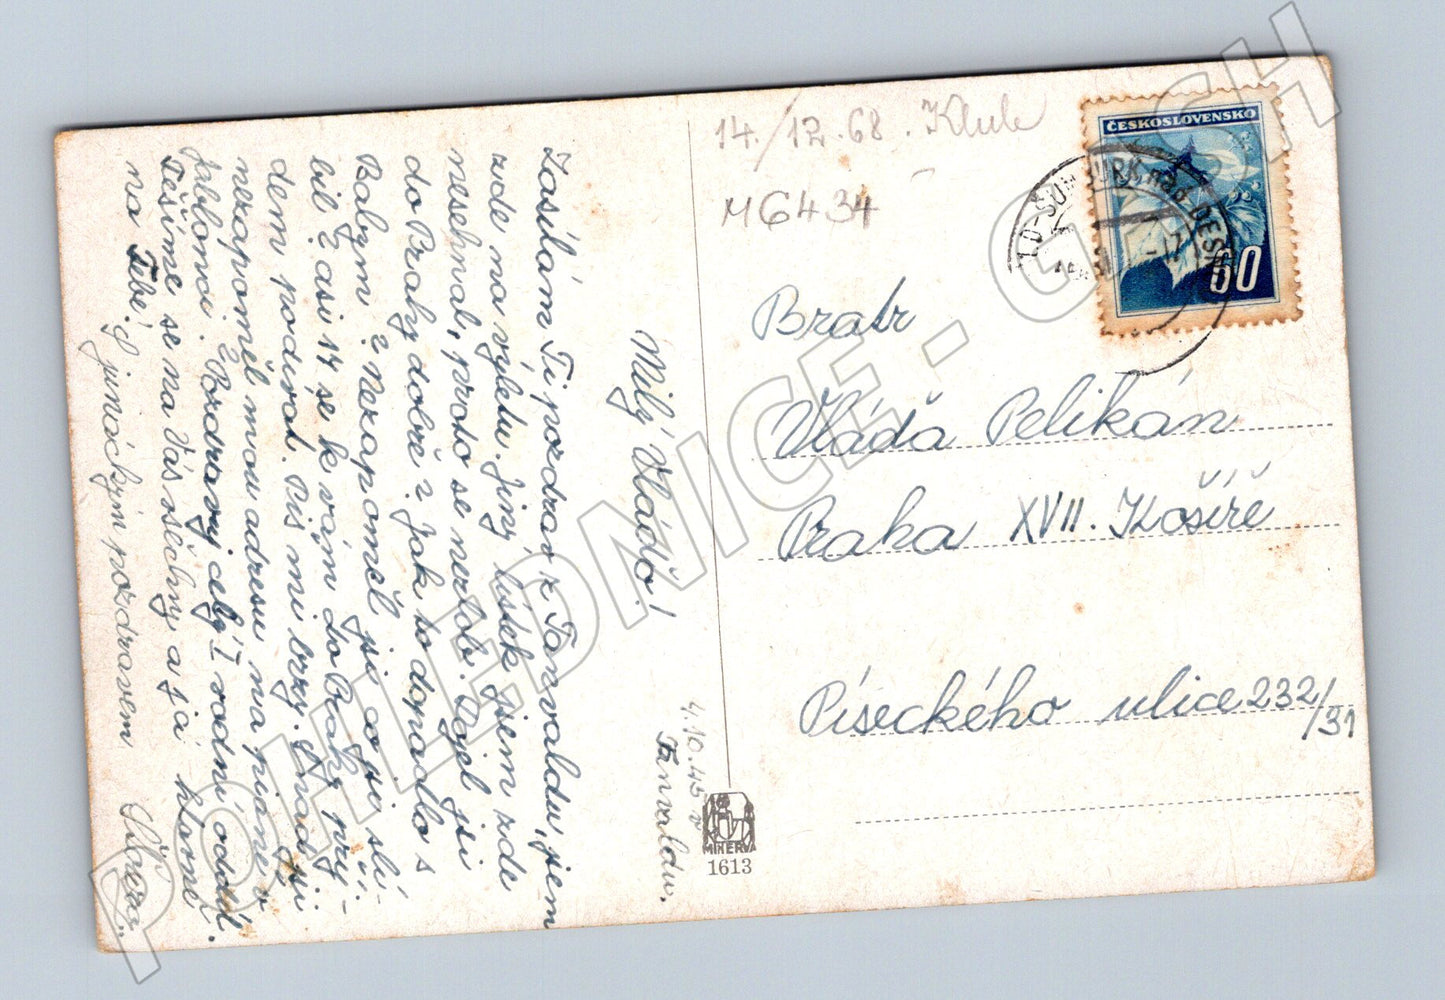 14./12.68. Klub
M6434
ČESKOSLOVENSKO
60
Bratr
Vláďa Pelikán
Praha XVII. Košíře
Píseckého ulice 232/31
4.10.45 v
Tanvaldu.
Milý Vláďo!
Zasílám Ti pozdrav z Tanvaldu, jsem
zde na výletu. Jiný lístek jsem zde
nesehnal, proto se nezlob. Dojel jsi
do Prahy dobře? Jak to dopadlo s
Balym? Nezapoměl jsi co jsi slí-
bil? asi 14 se k vám do Prahy při-
dem podívat. Piš mi brzy. Snad jsi
nezapoměl mou adresu na pioně v
Jablonci? Pozdravuj celý I rodní oddíl.
Těšíme se na Vás všechny a já hlavně
na Tebe! S junáckým pozdravem
MINERVA
1613
POHLEDNICE - CESKY.CH